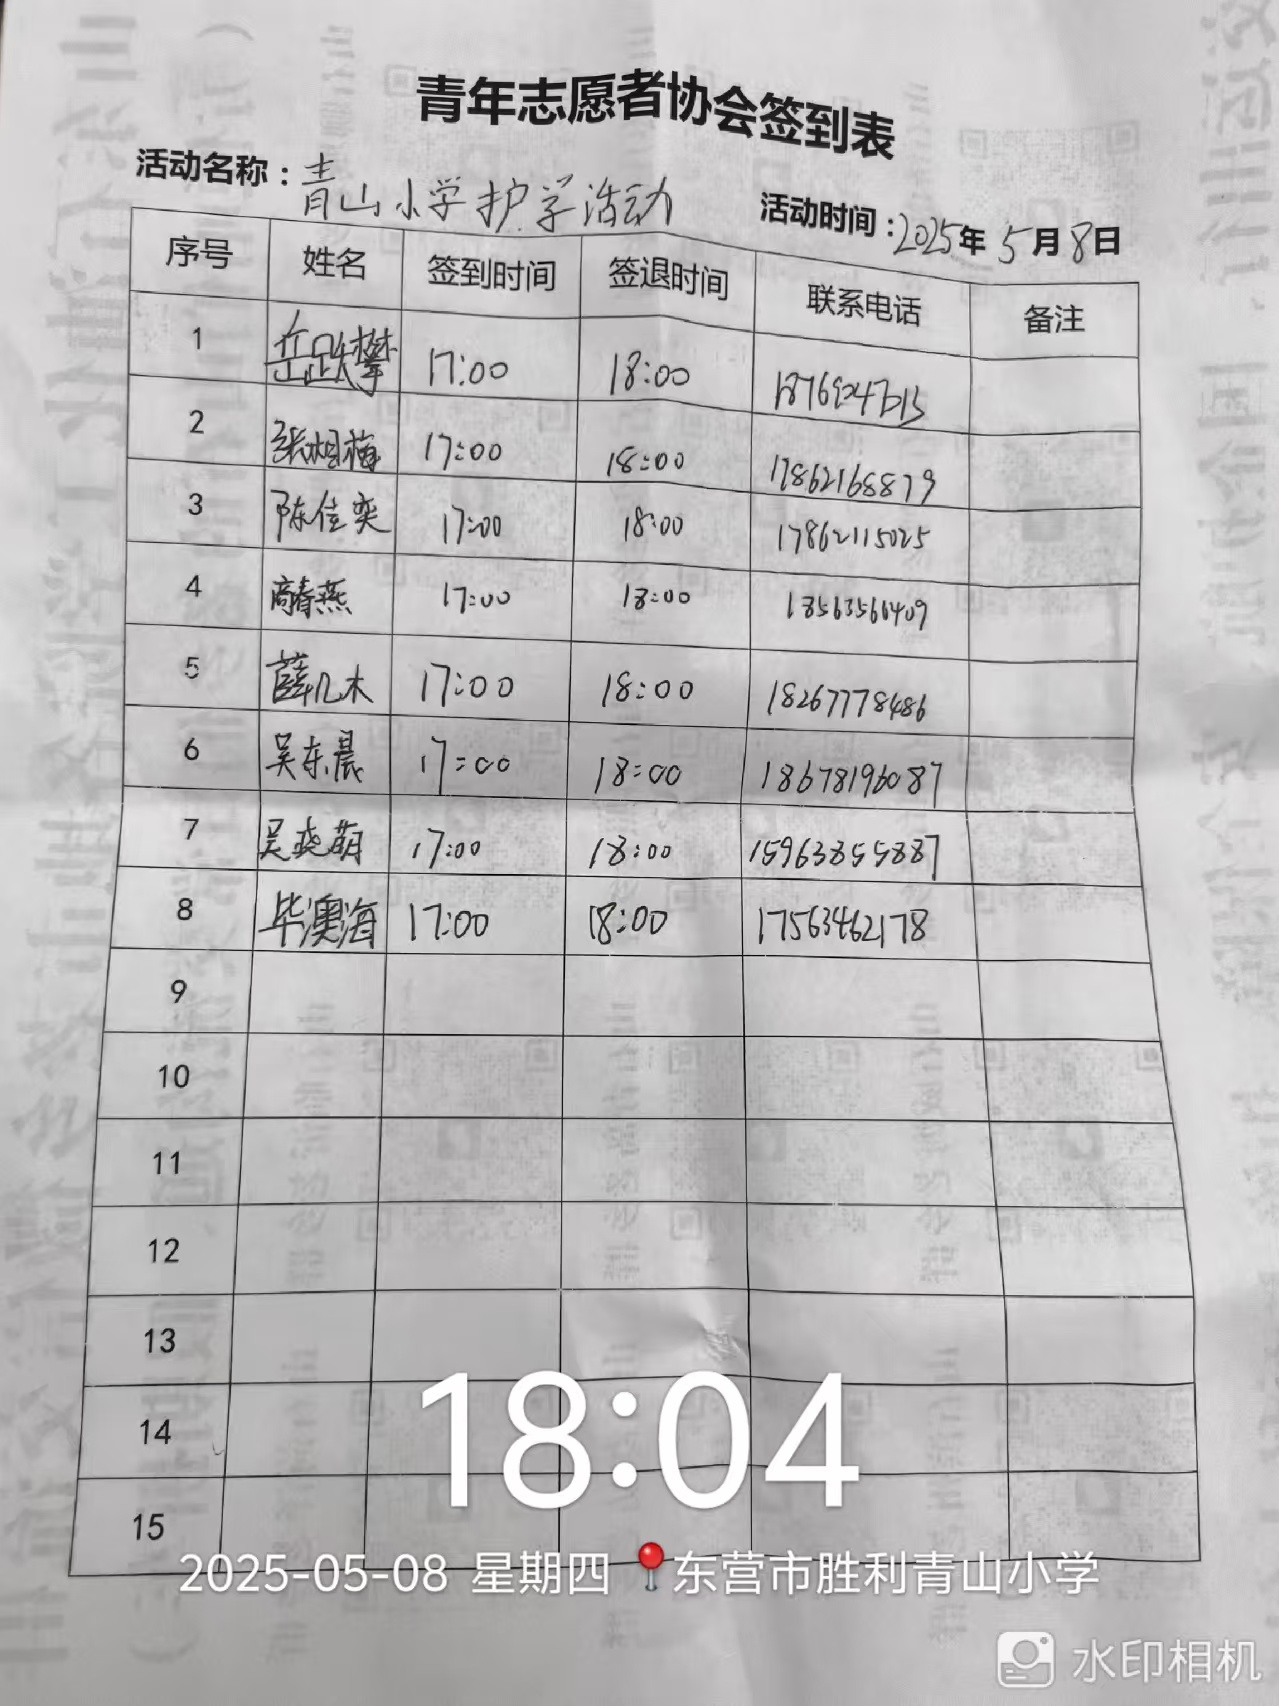 青年志愿者协会签到表
活动名称：青山小学护学活动 活动时间：2025年5月8日
序号 姓名 签到时间 签退时间 联系电话 备注
1 岳跃攀 17:00 18:00
2 张相梅 17:00 18:00 17862168879
3 陈佳奕 17:00 18:00 17862115025
4 高春燕 17:00 18:00 18563566409
5 薛几木 17:00 18:00 18267778486
6 吴东晨 17:00 18:00 18678196087
7 吴晓萌 17:00 18:00 15963855887
8 毕澳海 17:00 18:00 17563462178
9
10
11
12
13
14
15
18:04
2025-05-08 星期四 东营市胜利青山小学
水印相机